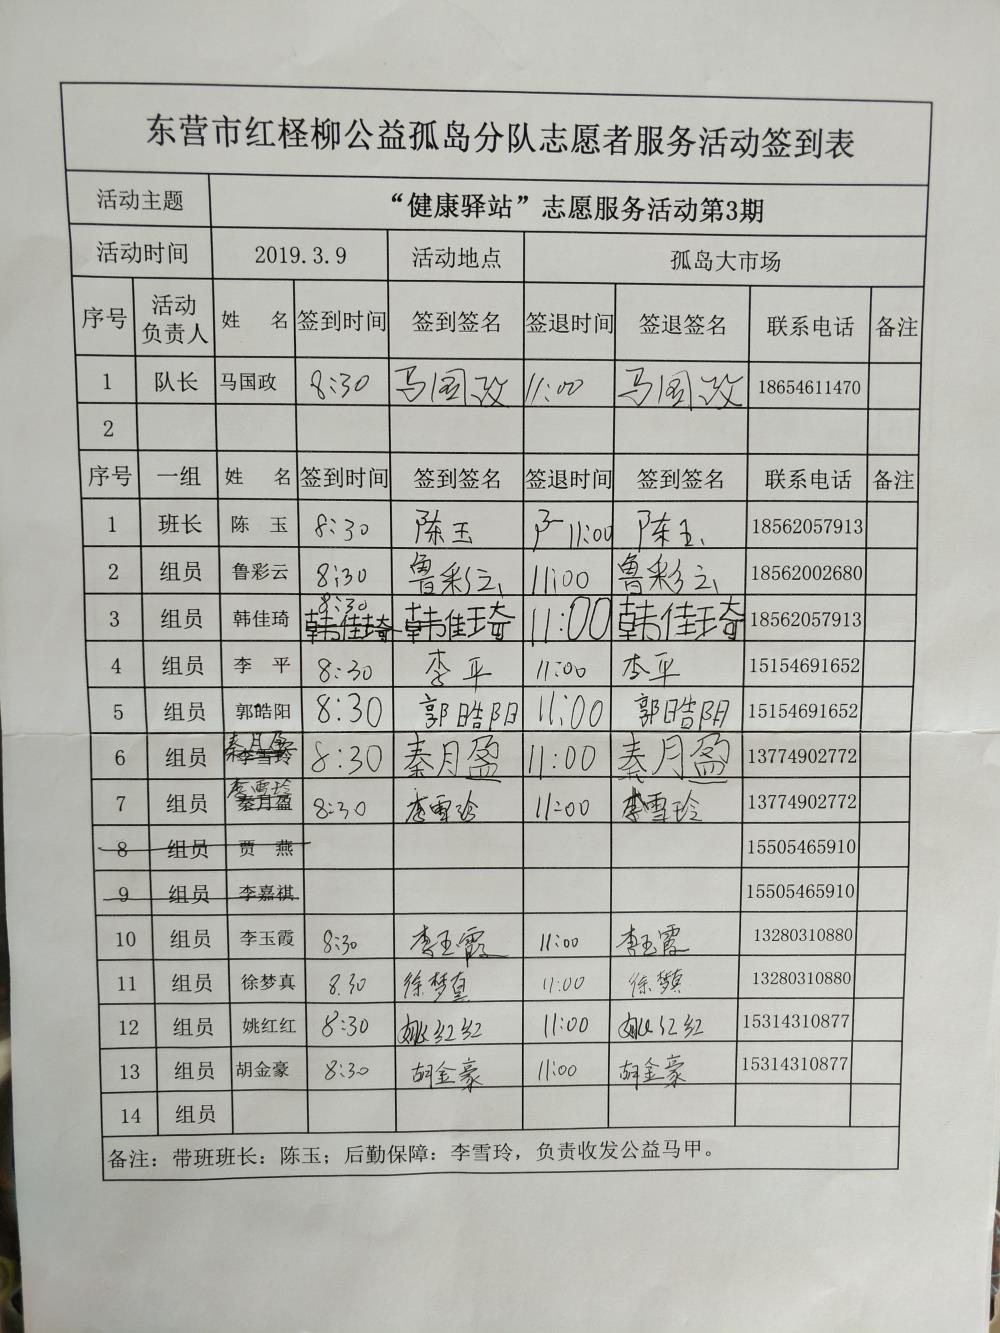 东营市红柽柳公益孤岛分队志愿者服务活动签到表
活动主题 “健康驿站”志愿服务活动第3期
活动时间 2019.3.9 活动地点 孤岛大市场
序号 活动负责人 姓 名 签到时间 签到签名 签退时间 签退签名 联系电话 备注
1 队长 马国政 8:30 马国政 11:00 马国政 18654611470
2
序号 一组 姓 名 签到时间 签到签名 签退时间 签到签名 联系电话 备注
1 班长 陈 玉 8:30 陈玉 11:00 陈玉 18562057913
2 组员 鲁彩云 8:30 鲁彩云 11:00 鲁彩云 18562002680
3 组员 韩佳琦 8:30 韩佳琦 韩佳琦 11:00 韩佳琦 18562057913
4 组员 李 平 8:30 李平 11:00 李平 15154691652
5 组员 郭皓阳 8:30 郭皓阳 11:00 郭皓阳 15154691652
6 组员 秦月盈 李雪玲 8:30 秦月盈 11:00 秦月盈 13774902772
7 组员 李雪玲 秦月盈 8:30 李雪玲 11:00 李雪玲 13774902772
8 组员 贾 燕 15505465910
9 组员 李嘉祺 15505465910
10 组员 李玉霞 8:30 李玉霞 11:00 李玉霞 13280310880
11 组员 徐梦真 8:30 徐梦真 11:00 徐梦真 13280310880
12 组员 姚红红 8:30 姚红红 11:00 姚红红 15314310877
13 组员 胡金豪 8:30 胡金豪 11:00 胡金豪 15314310877
14 组员
备注：带班班长：陈玉；后勤保障：李雪玲，负责收发公益马甲。